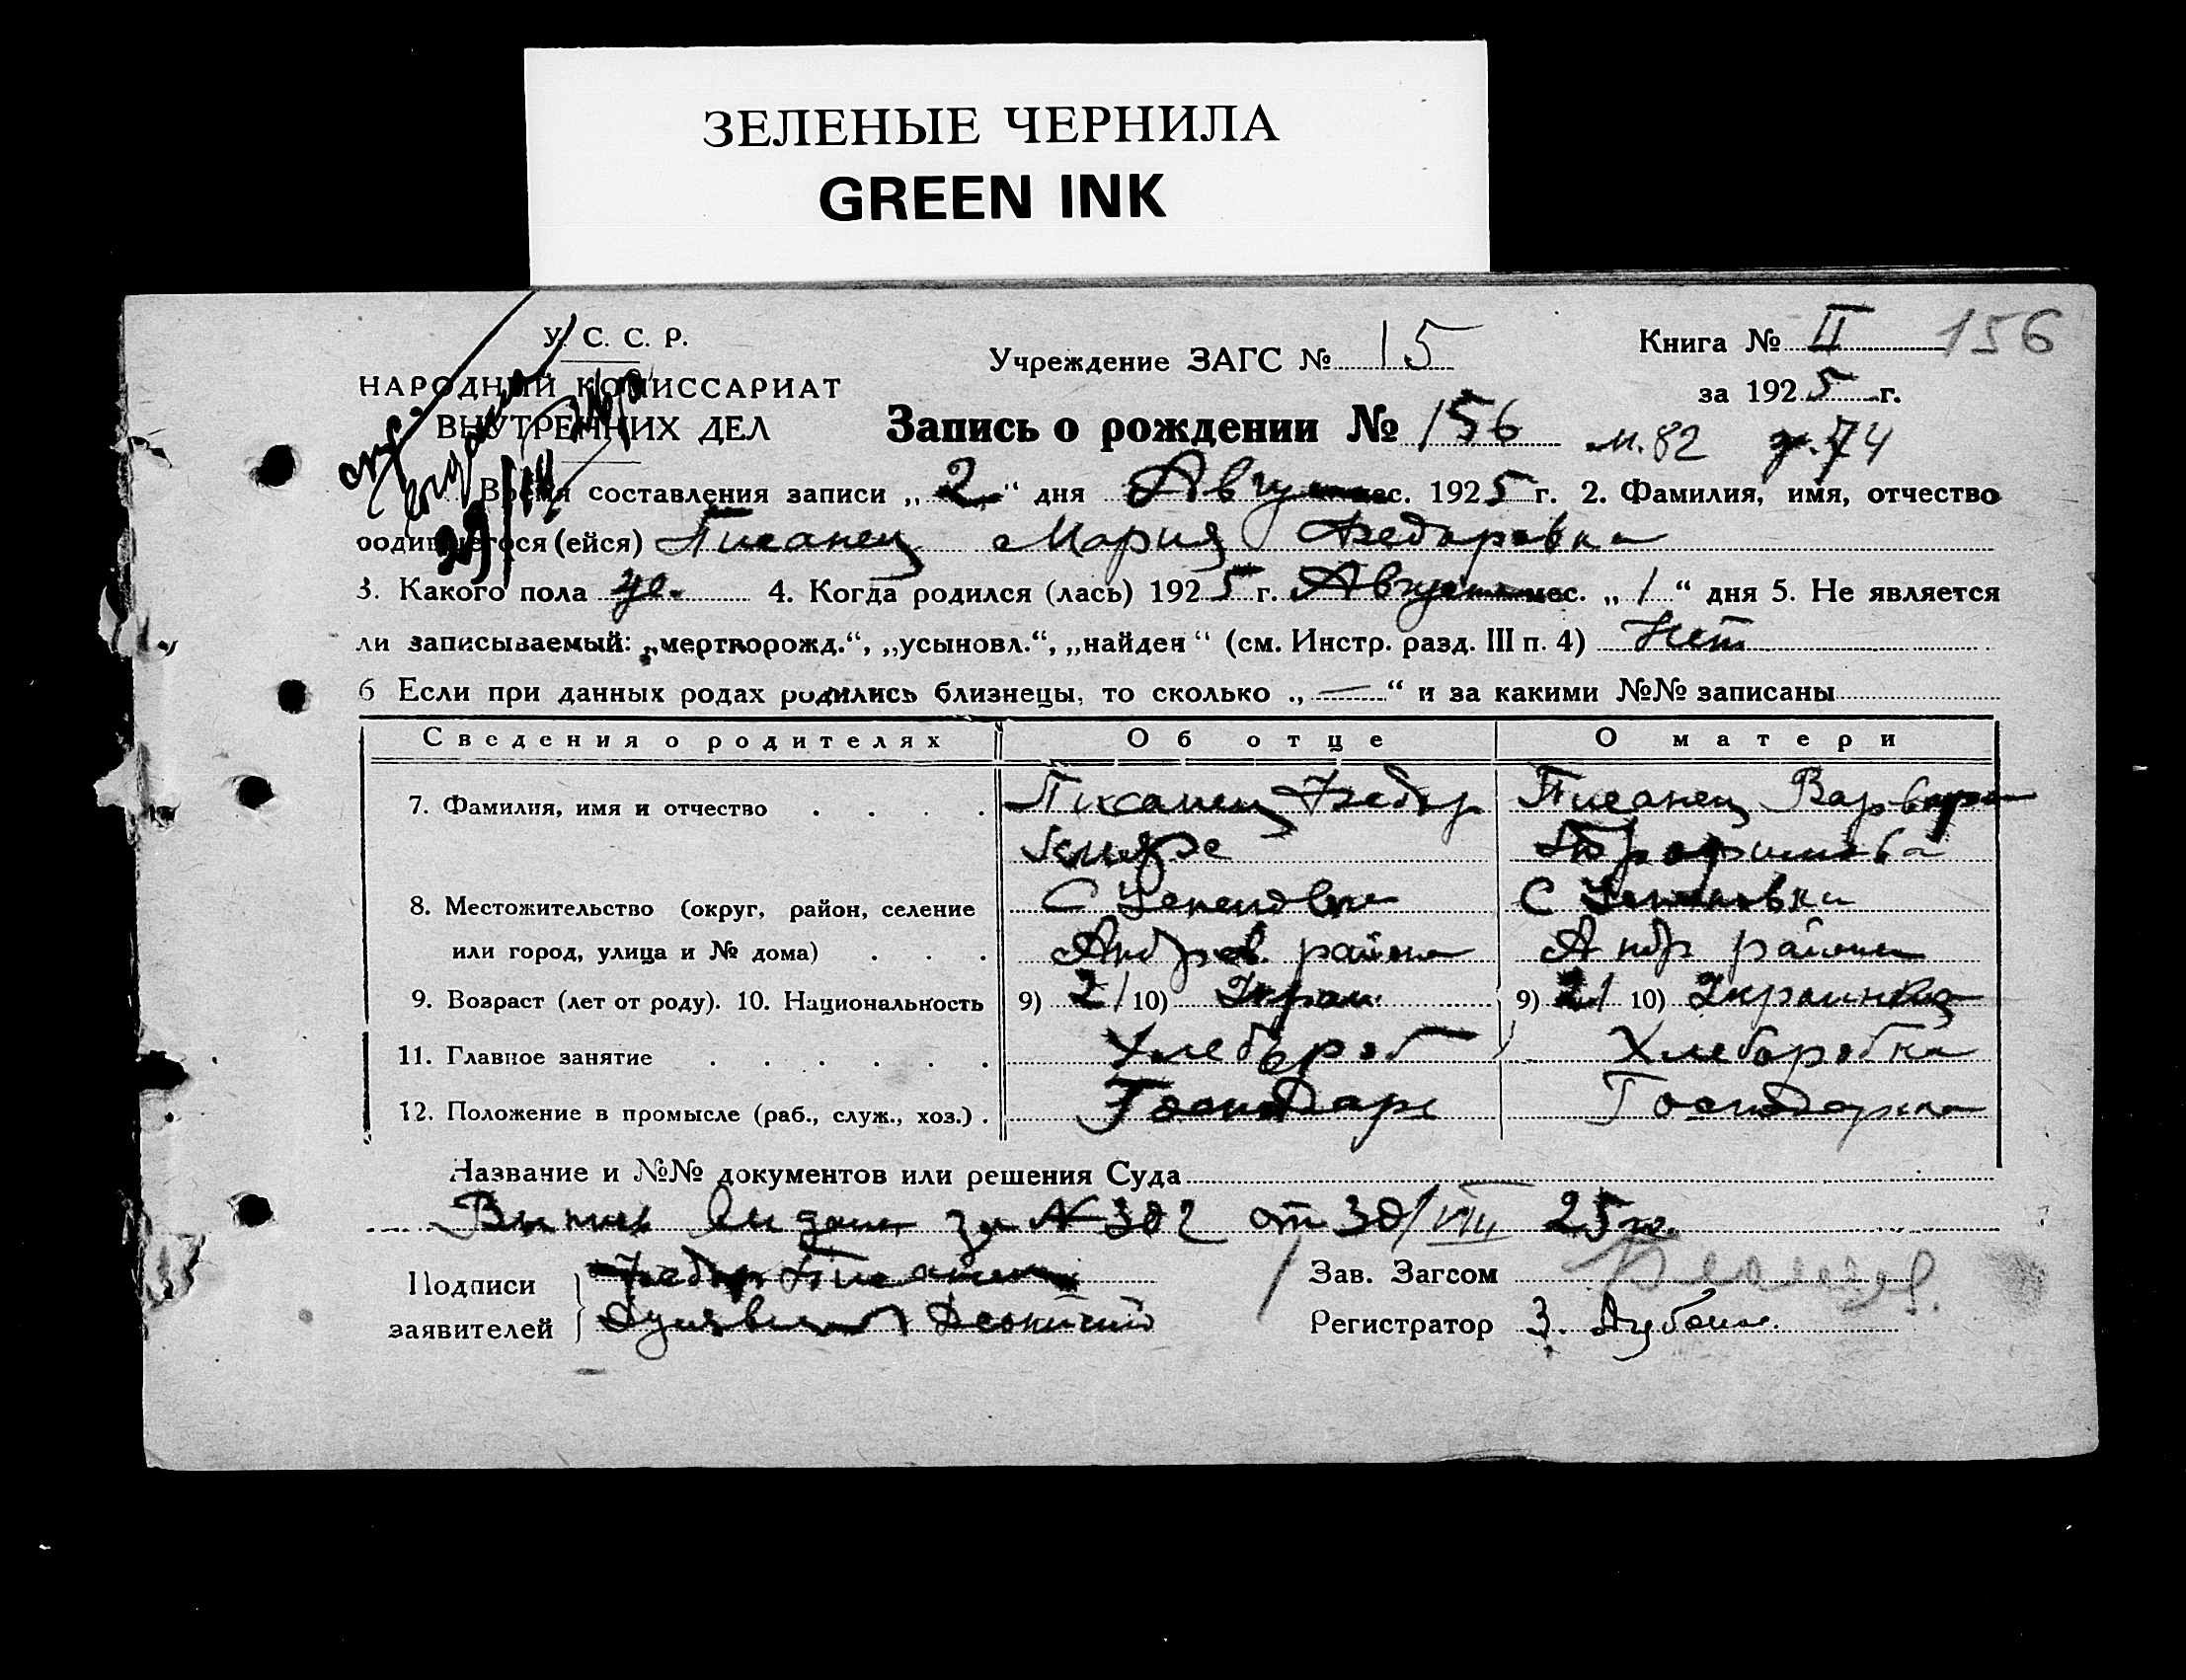 ЗЕЛЕНЫЕ ЧЕРНИЛА
GREEN INK
У. С. С. Р.
НАРОДНЫЙ КОМИССАРИАТ
ВНУТРЕННИХ ДЕЛ
Учреждение ЗАГС № 15
Книга № II 156
за 1925 г.
Запись о рождении № 156 м. 82 ж. 74
Время составления записи „2“ дня Август мес. 1925 г. 2. Фамилия, имя, отчество
родившегося (ейся) Писанец Мария Федоровна
3. Какого пола же. 4. Когда родился (лась) 1925 г. Август мес. „1“ дня 5. Не является
ли записываемый: „мертворожд.“, „усыновл.“, „найден“ (см. Инстр. разд. III п. 4) Нет
6 Если при данных родах родились близнецы, то сколько „—“ и за какими №№ записаны
Сведения о родителях Об отце О матери
7. Фамилия, имя и отчество Писанец Федор Писанец Варвара
8. Местожительство (округ, район, селение С С
или город, улица и № дома) Андрев. района Андр района
9. Возраст (лет от роду). 10. Национальность 9) 21 10) Украи. 9) 21 10) Украинка
11. Главное занятие Хлебороб Хлеборобка
12. Положение в промысле (раб., служ., хоз.) Господарь Господарка
Название и №№ документов или решения Суда
за № 302 от 30/VIII 25 г.
Подписи Федор Писанец Зав. Загсом
заявителей Регистратор З.